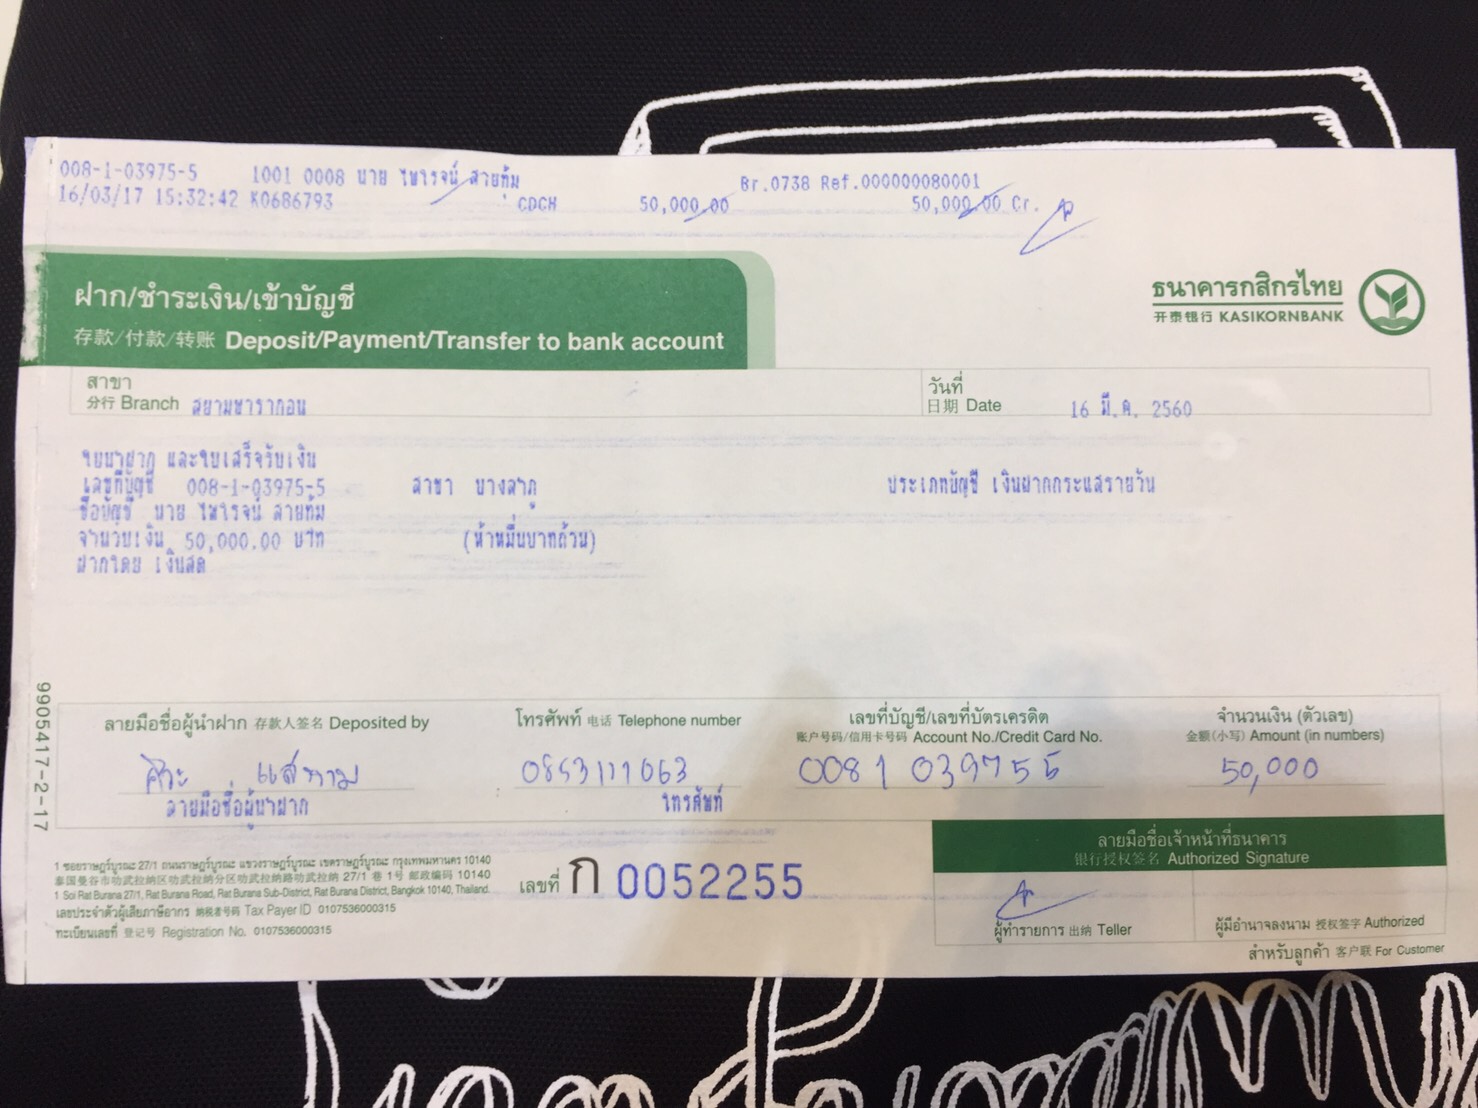 008-1-03975-5 1001 0008 นาย ไพโรจน์ สายทุ้ม Br.0738 Ref.000000080001
16/03/17 15:32:42 K0686793 CDCH 50,000.00 50,000.00 Cr.
ฝาก/ชำระเงิน/เข้าบัญชี
存款/付款/转账 Deposit/Payment/Transfer to bank account
ธนาคารกสิกรไทย
开泰银行 KASIKORNBANK
สาขา
分行 Branch สยามพารากอน
วันที่
日期 Date 16 มี.ค. 2560
ใบนำฝาก และใบเสร็จรับเงิน
เลขที่บัญชี 008-1-03975-5 สาขา บางลำภู ประเภทบัญชี เงินฝากกระแสรายวัน
ชื่อบัญชี นาย ไพโรจน์ สายทุ้ม
จำนวนเงิน 50,000.00 บาท (ห้าหมื่นบาทถ้วน)
ฝากโดย เงินสด
9905417-2-17
ลายมือชื่อผู้นำฝาก 存款人签名 Deposited by
โทรศัพท์ 电话 Telephone number
เลขที่บัญชี/เลขที่บัตรเครดิต
账户号码/信用卡号码 Account No./Credit Card No.
จำนวนเงิน (ตัวเลข)
金额(小写) Amount (in numbers)
0853111063 0081039755 50,000
ลายมือชื่อผู้นำฝาก โทรศัพท์
1 ซอยราษฎร์บูรณะ 27/1 ถนนราษฎร์บูรณะ แขวงราษฎร์บูรณะ เขตราษฎร์บูรณะ กรุงเทพมหานคร 10140
泰国曼谷市叻武拉纳区叻武拉纳分区叻武拉纳路叻武拉纳 27/1 巷 1号 邮政编码 10140
1 Soi Rat Burana 27/1, Rat Burana Road, Rat Burana Sub-District, Rat Burana District, Bangkok 10140, Thailand.
เลขประจำตัวผู้เสียภาษีอากร 纳税者号码 Tax Payer ID 0107536000315
ทะเบียนเลขที่ 登记号 Registration No. 0107536000315
เลขที่ ก 0052255
ลายมือชื่อเจ้าหน้าที่ธนาคาร
银行授权签名 Authorized Signature
ผู้ทำรายการ 出纳 Teller
ผู้มีอำนาจลงนาม 授权签字 Authorized
สำหรับลูกค้า 客户联 For Customer